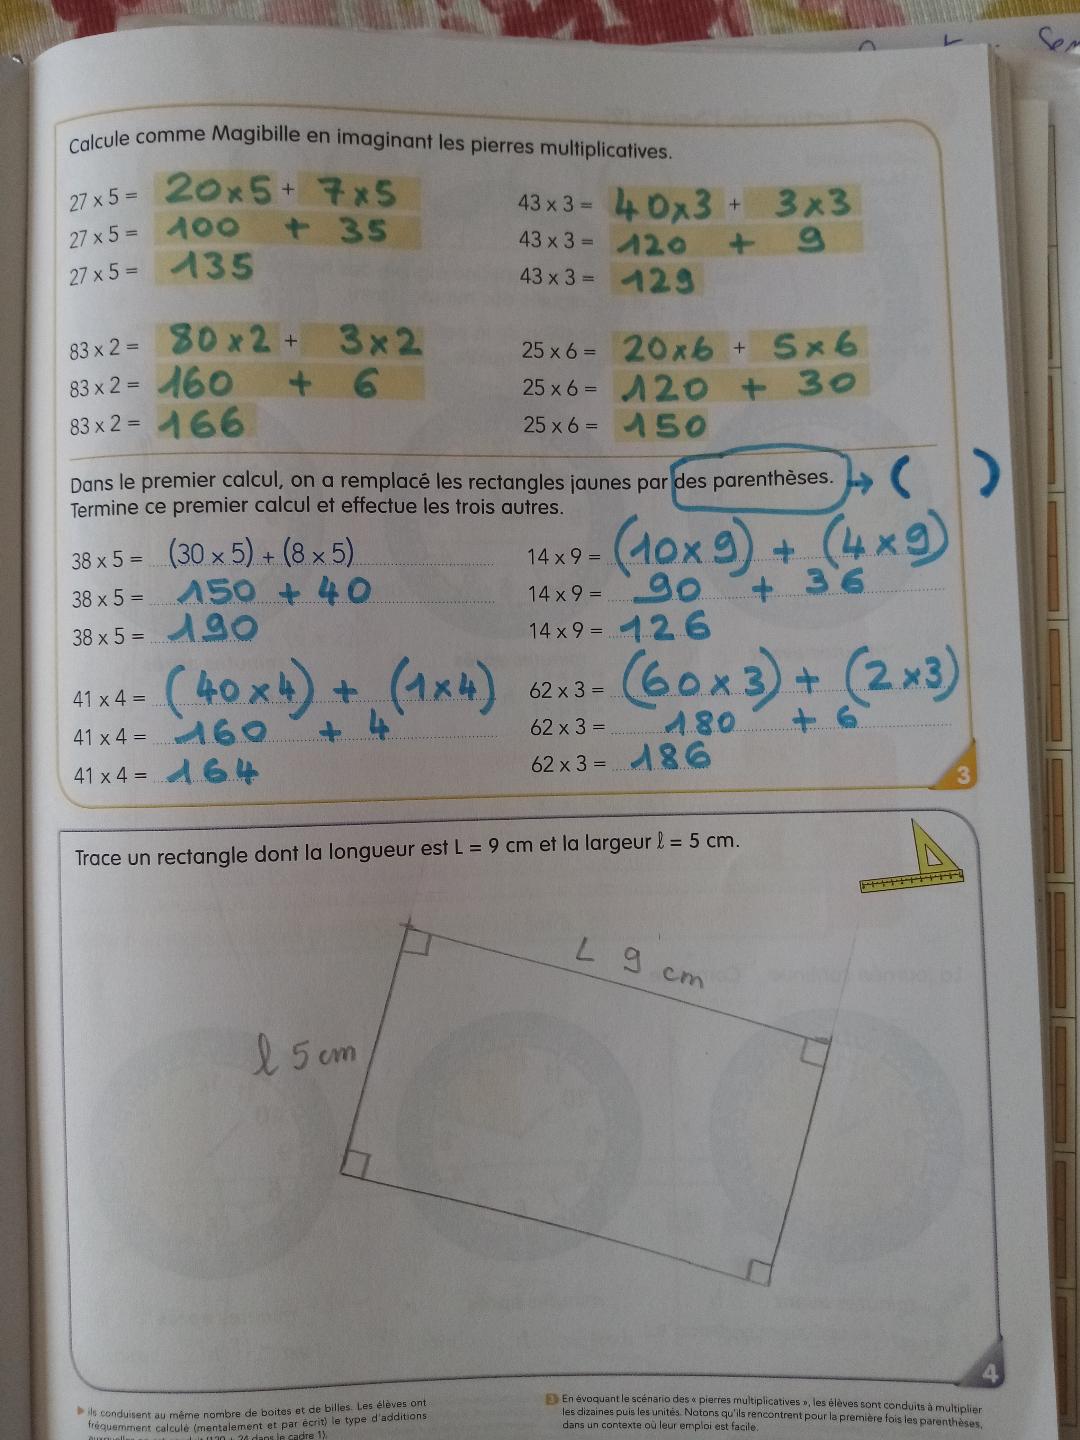 Sem
Calcule comme Magibille en imaginant les pierres multiplicatives.
27 x 5 = 20x5 + 7x5
27 x 5 = 100 + 35
27 x 5 = 135
43 x 3 = 40x3 + 3x3
43 x 3 = 120 + 9
43 x 3 = 129
83 x 2 = 80x2 + 3x2
83 x 2 = 160 + 6
83 x 2 = 166
25 x 6 = 20x6 + 5x6
25 x 6 = 120 + 30
25 x 6 = 150
Dans le premier calcul, on a remplacé les rectangles jaunes par des parenthèses. → ( )
Termine ce premier calcul et effectue les trois autres.
38 x 5 = (30 x 5) + (8 x 5)
38 x 5 = 150 + 40
38 x 5 = 190
14 x 9 = (10x9) + (4x9)
14 x 9 = 90 + 36
14 x 9 = 126
41 x 4 = (40x4) + (1x4)
41 x 4 = 160 + 4
41 x 4 = 164
62 x 3 = (60x3) + (2x3)
62 x 3 = 180 + 6
62 x 3 = 186
3
Trace un rectangle dont la longueur est L = 9 cm et la largeur ℓ = 5 cm.
L 9 cm
l 5 cm
4
ils conduisent au même nombre de boites et de billes. Les élèves ont
fréquemment calculé (mentalement et par écrit) le type d'additions
dans le cadre 1).
3 En évoquant le scénario des « pierres multiplicatives », les élèves sont conduits à multiplier
les dizaines puis les unités. Notons qu'ils rencontrent pour la première fois les parenthèses,
dans un contexte où leur emploi est facile.